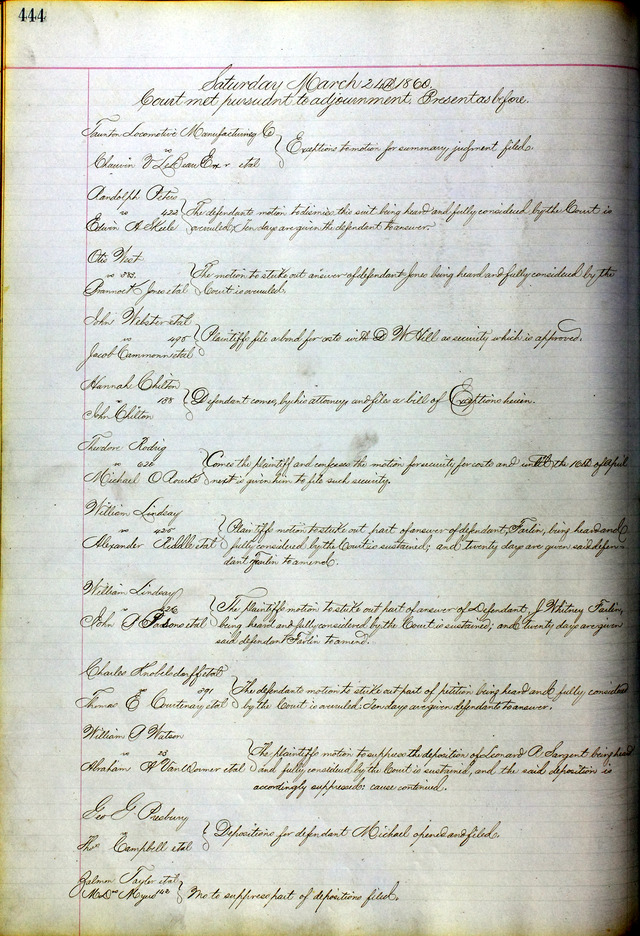 444
Saturday March 24th 1860.
Court met pursuant to adjournment. Present as before.
Taunton Locomotive Manufacturing Co
vs
Chauvin V LeBeau Exr et al
Exceptions to motion for summary judgment filed.
Randolph Peters
vs 422
Edwin A
The defendants motion to dismiss this suit being heard and fully considered by the Court is
overruled, Ten days are given the defendant to answer.
Otis West
vs 383.
Jones et al
The motion to strike out answer of defendant Jones being heard and fully considered by the
Court is overruled.
John Webster et al
vs 495
Jacob Cammon et al
Plaintiffs file a bond for costs with D W Hill as security which is approved.
Hannah Chilton
vs 188
John Chilton
Defendant comes, by his attorney and files a bill of Exceptions herein.
Theodore
vs 620
Michael O Rourke
Comes the plaintiff and confesses the motion for security for costs and until the 16th of April
next is given him to file such security.
William Lindsay
vs 425
Alexander Riddle et al
Plaintiffs motion to strike out part of answer of defendant, Farlin, being heard and
fully considered by the Court is sustained; and twenty days are given said defen-
dant Farlin to amend.
William Lindsay
vs 426
John A Parsons et al
The plaintiffs motion to strike out part of answer of Defendant, J Whitney Farlin,
being heard and fully considered by the Court is sustained; and twenty days are given
said defendant Farlin to amend.
Charles Knobelsdorff et al
vs 391
Thomas E Courtenay et al
The defendants motion to strike out part of petition being heard and fully considered
by the Court is overruled. Ten days are given defendants to answer.
William A Watson
vs 23
Abraham H VanWormer et al
The plaintiffs motion to suppress the deposition of Leonard A Sargent being heard
and fully considered by the Court is sustained, and the said deposition is
accordingly suppressed: cause continued.
Geo G Presbury
vs
Thos Campbell et al
Depositions for defendant Michael opened and filed.
Zalmon Taylor et al
vs 142
Mo to suppress part of depositions filed.